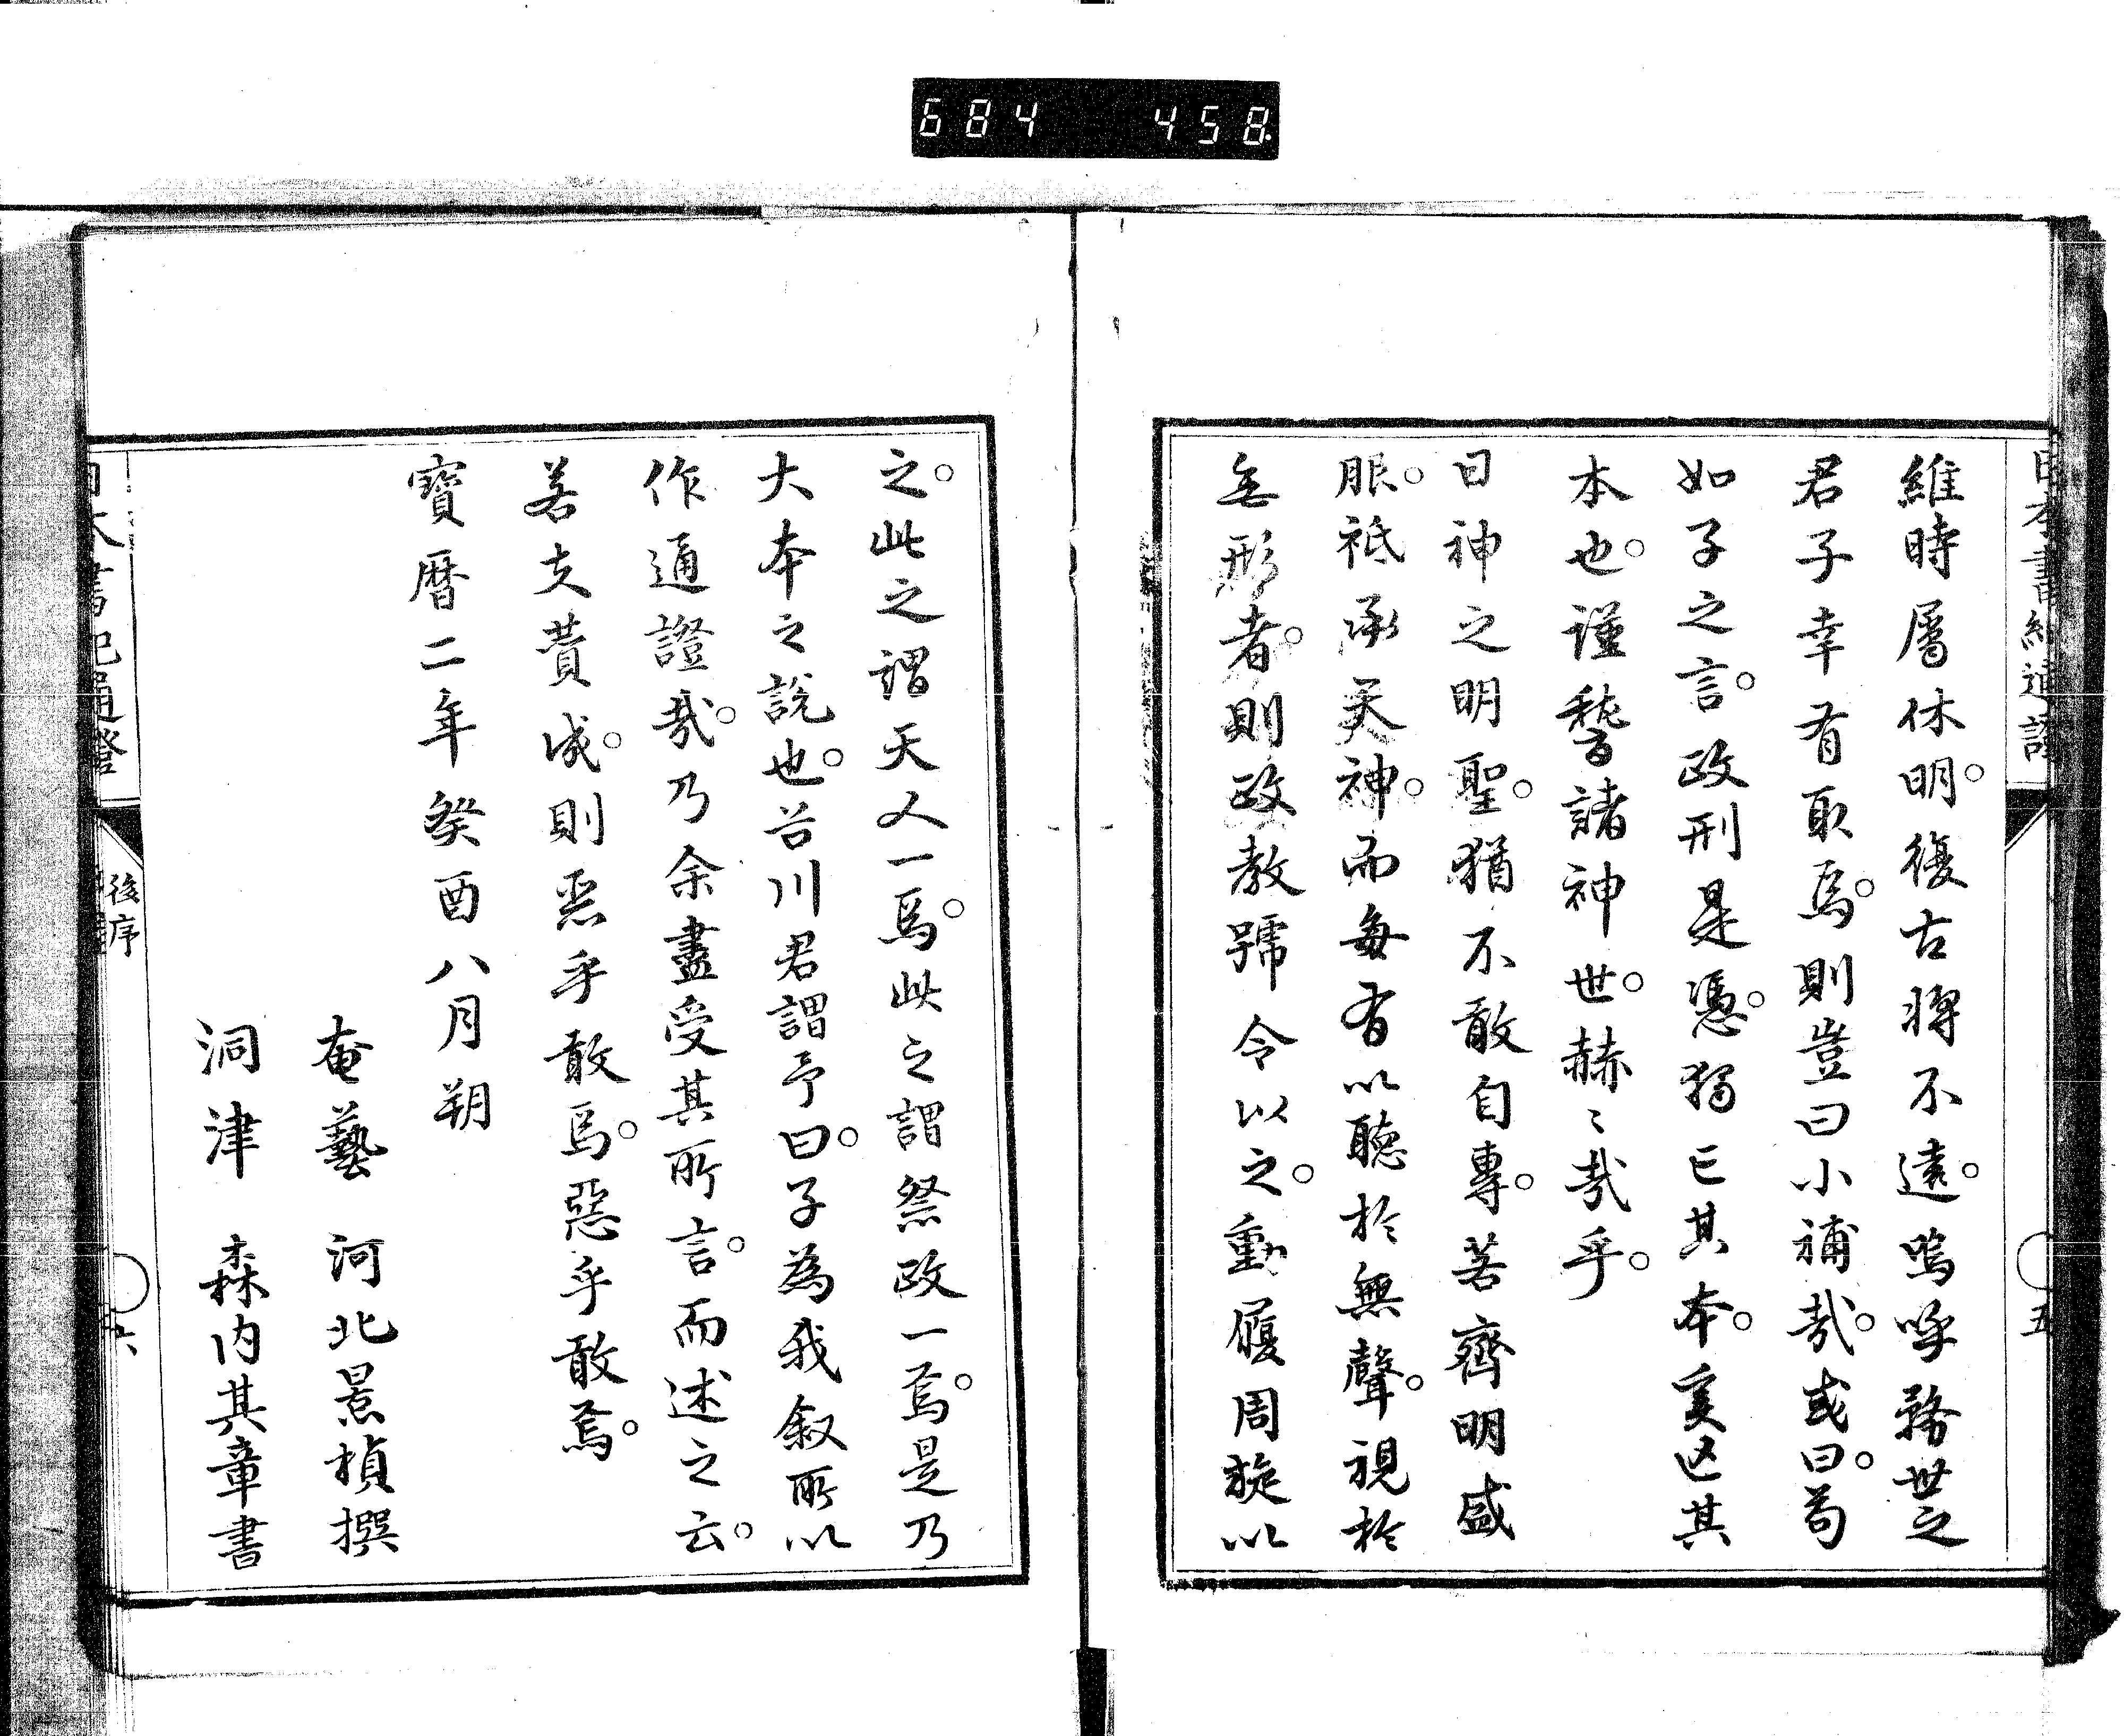 684 458
日本書紀通證
五
維時屬休明。復古將不遠。嗚呼務世之
君子幸有取焉。則豈曰小補哉。或曰。苟
如子之言。政刑是憑。獨亡其本。奚其
本也。謹稽諸神世。赫〻哉乎。
日神之明聖。猶不敢自專。若齊明盛
服。祗承天神。而每有以聽於無聲。視於
无形者。則政教號令以之。動履周旋以
之。此之謂天人一焉。此之謂祭政一焉。是乃
大本之說也。谷川君謂予曰。子為我叙所以
作通證哉。乃余盡受其所言。而述之云。
若夫贊成。則惡乎敢焉。惡乎敢焉。
寶暦二年癸酉八月朔
奄藝 河北景楨撰
洞津 森内其章書
日本書紀通證
後序
六